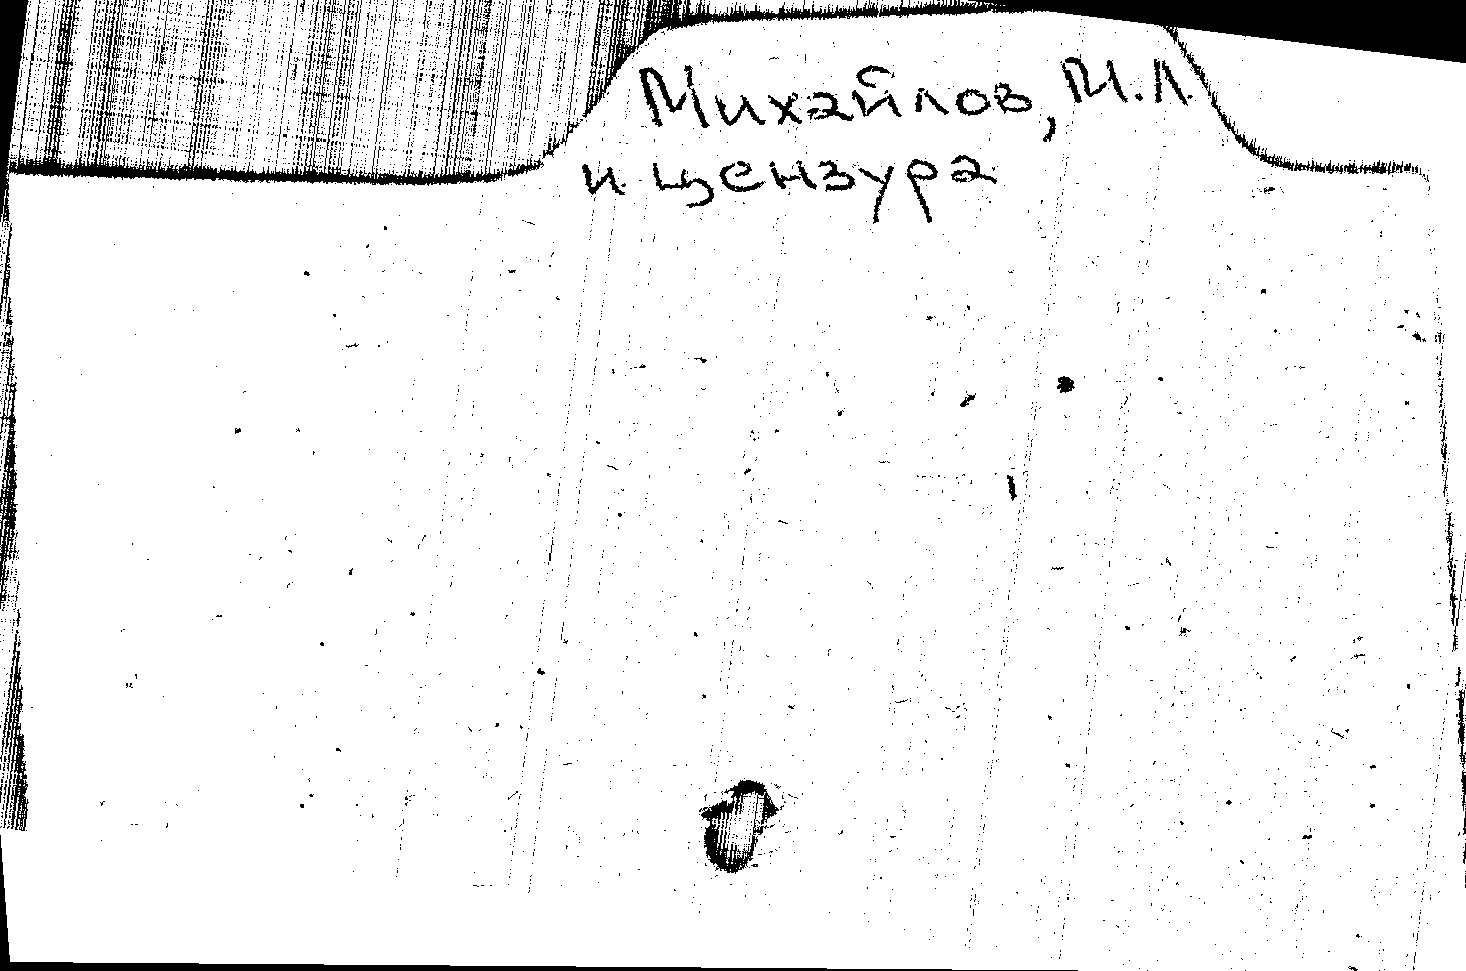 Михайлов, М.Л.
и цензура